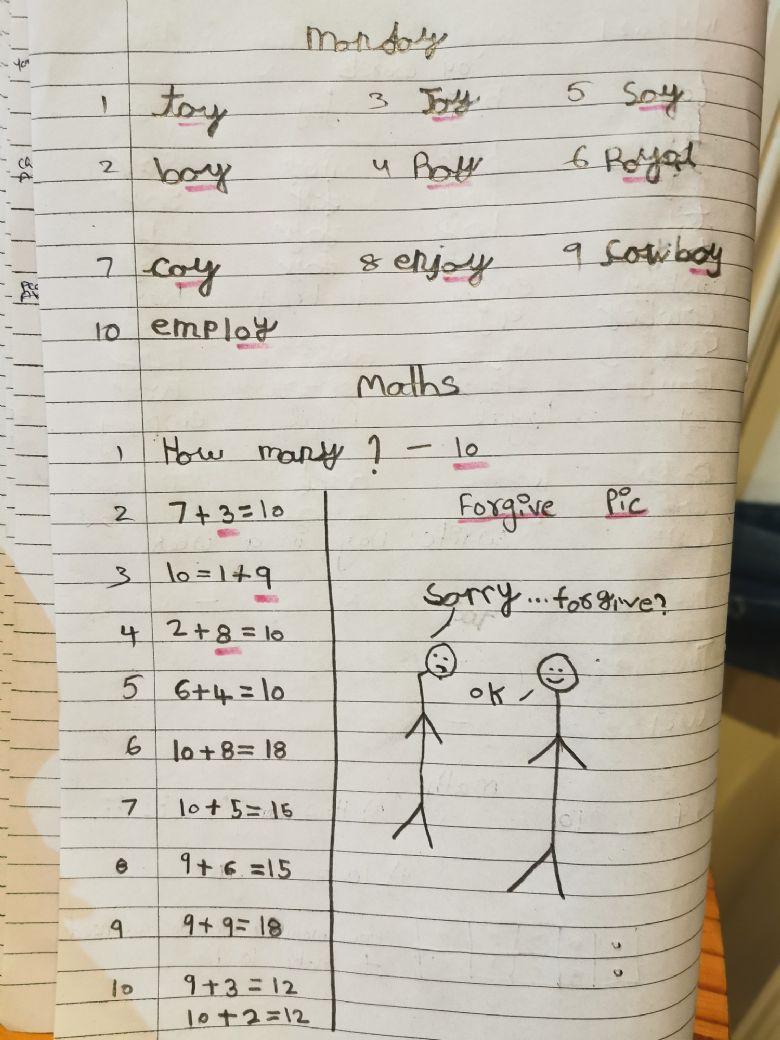 Monday
1 toy 3 Joy 5 Soy
2 boy 4 Roy 6 Royal
7 coy 8 enjoy 9 Cowboy
10 employ
Maths
1 How many? - 10
2 7+3=10
3 10=1+9
4 2+8=10
5 6+4=10
6 10+8=18
7 10+5=15
8 9+6=15
9 9+9=18
10 9+3=12
10+2=12
Forgive Pic
Sorry...forgive?
OK